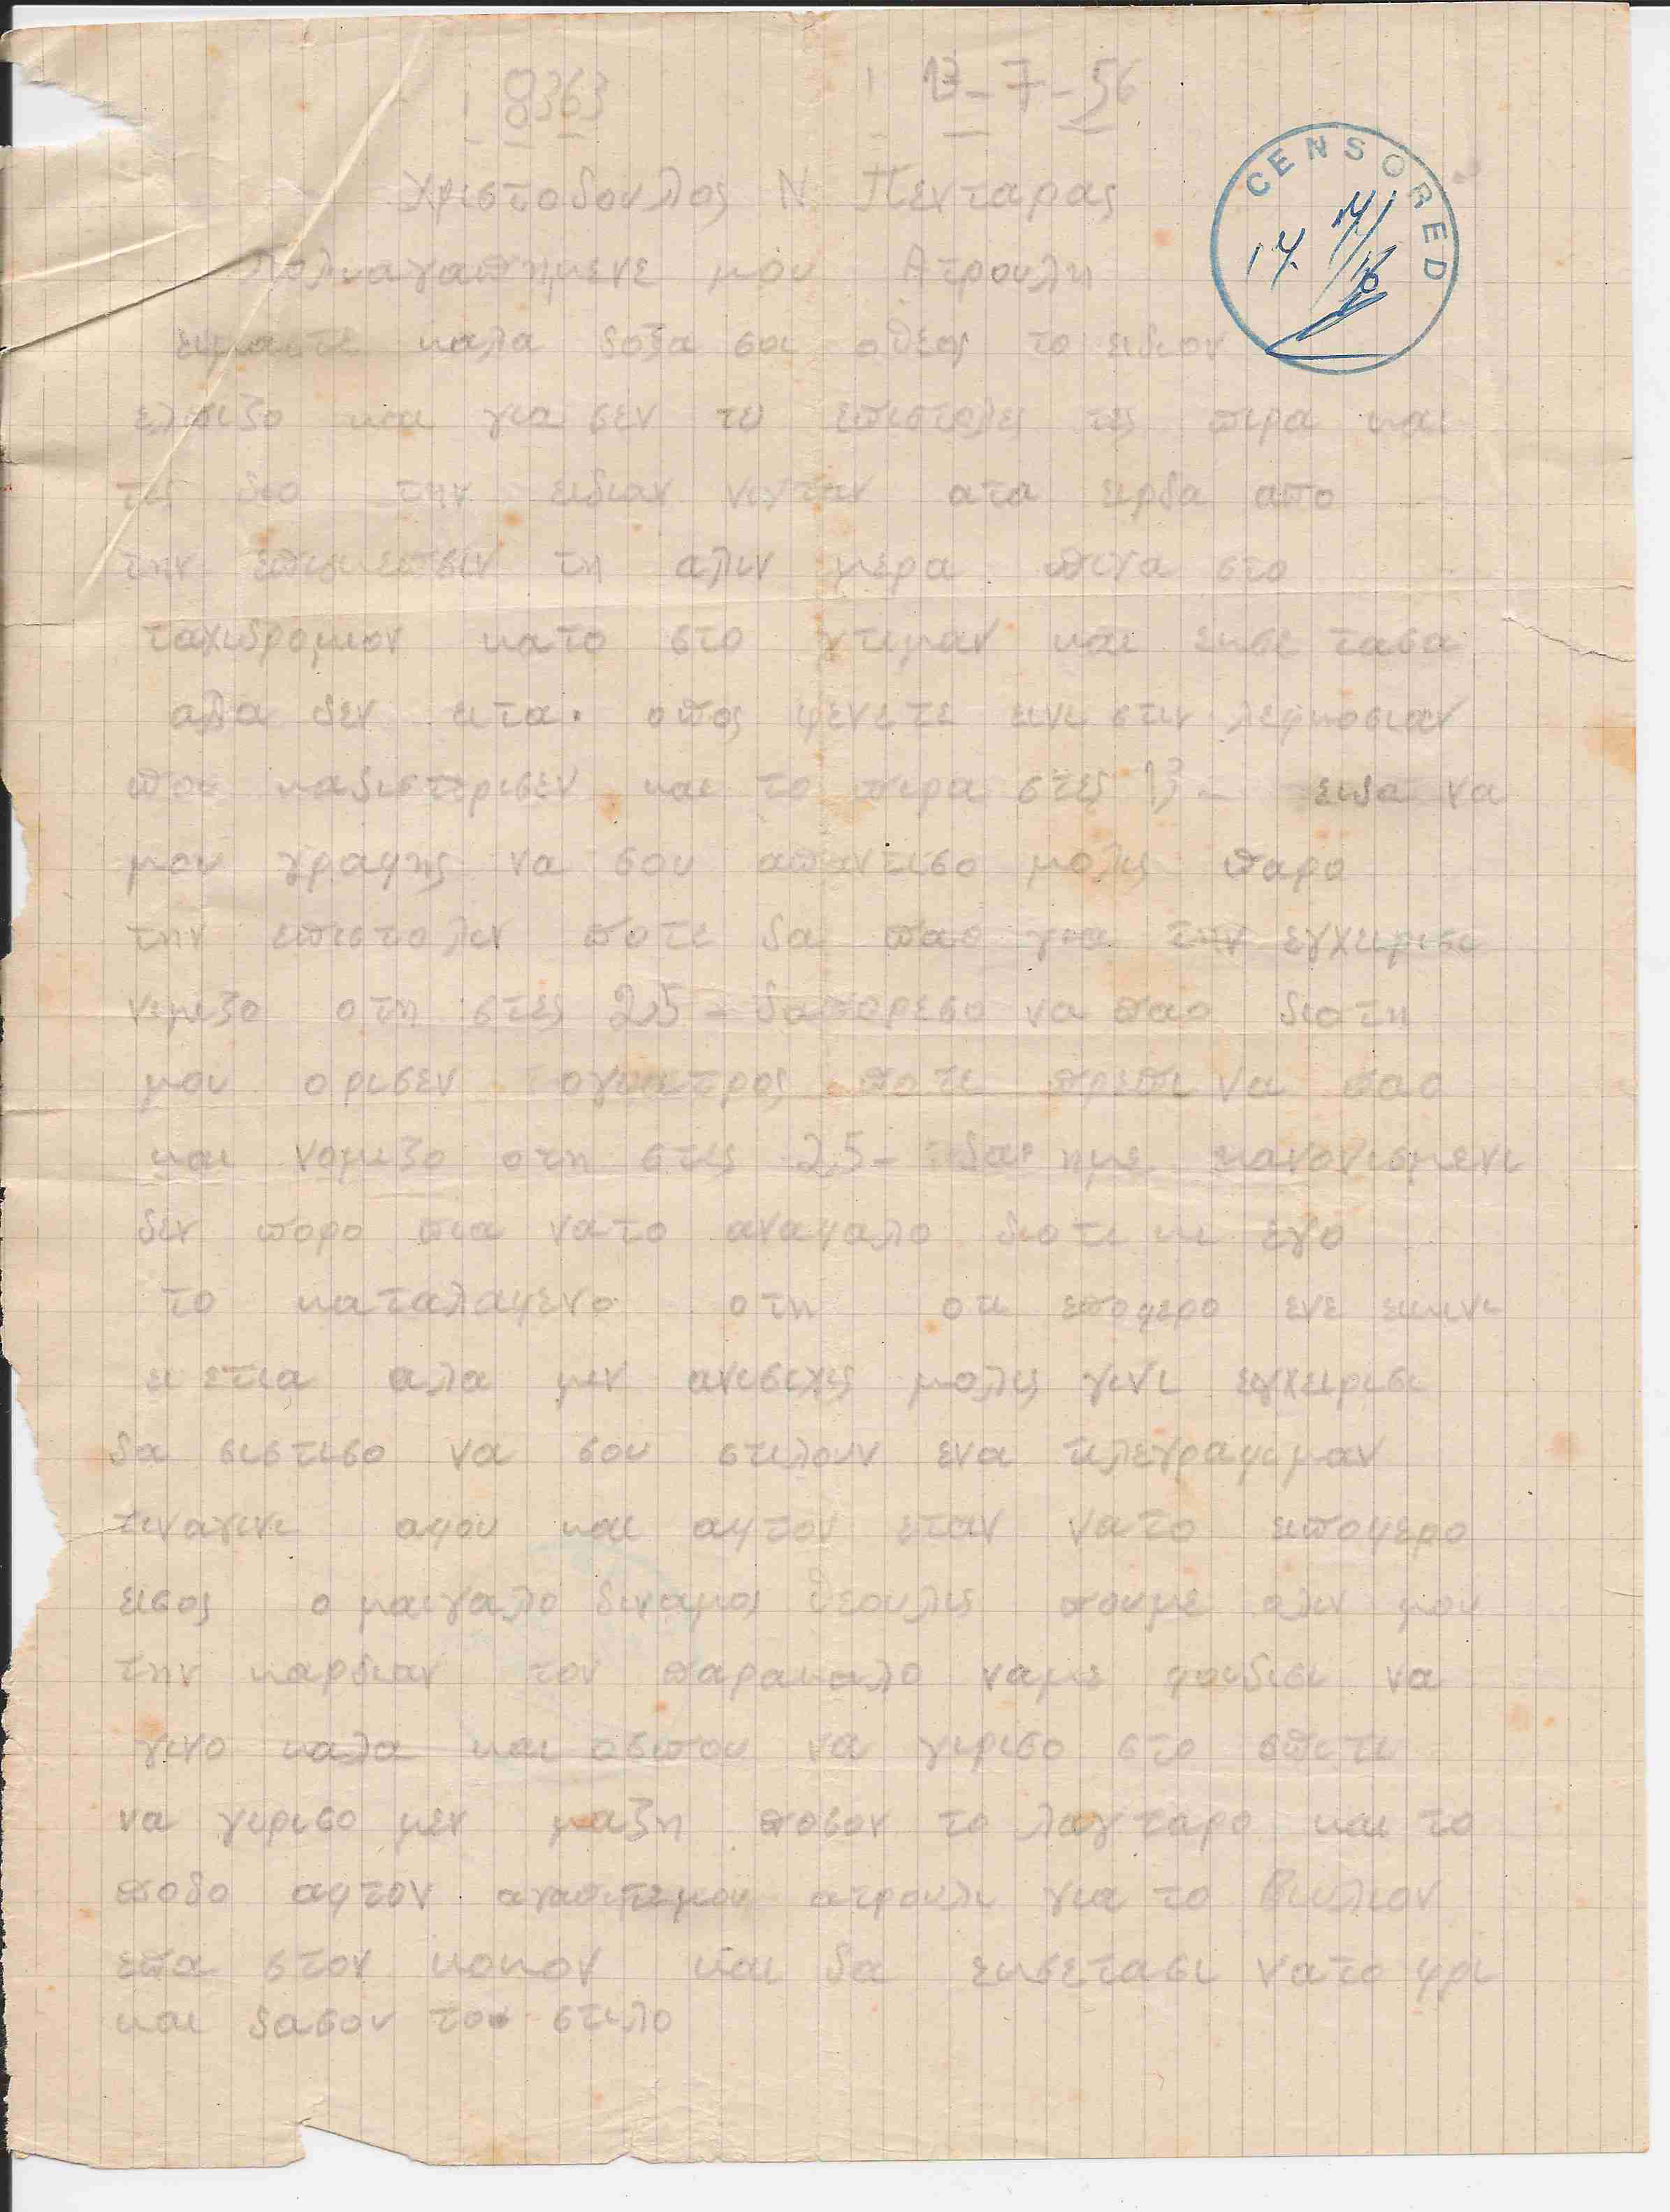 8363 13-7-56
CENSORED
Χριστοδουλος Ν. Πενταρας
Πολιαγαπημενε μου Ατρουλη
ειμαστε καλα δοξα σοι οθεος το ειδιον
ελπιζο και για σεν τις επιστολες τες πιρα και
τες διο την ειδιαν νιχταν οτα ειρδα απο
την επισκεπσιν τη αλιν μερα πιγα στο
ταχιδρομιον κατο στο χτιμαν και εκσε τασα
αλλα δεν ειτα. οπος φενετε εινε στιν λεφκοσιαν
που καδιστερισεν και το πιρα στες 13 - ειδα να
μου γραφης να σου απαντισο μολις παρο
την επιστολιν ποτε δα παο για την εγχειρισι
νιμιζο οτη στες 25 - δαπορεσο να παο διοτη
μου ορισεν ογιατρος ποτε πρεπι να παο
και νομιζο οτη στες 25 - δα ημε κανονισμενι
δεν πορο πια νατο αναβαλο διοτι κε εγο
το καταλαφενο οτη οτι εποφερο ενε εκινι
ι ετια αλα μεν ανισιχις μολις γινι εγχειρισι
δα σιστισο να σου στιλουν ενα τιλεγραφιμαν
τιναγινι αφου και αφτον εταν νατο ειποφερο
εισος ο μαιγαλο διναμος θεουλις πουμε ολιν μου
την καρδιαν τον παρακαλο ναμε φοιδισι να
γινο καλα και οσιπου να γιρισο στο σπιτι
να γιρισο μεν μαζη ποσον το λαχταρο και το
ποδο αφτον αγαπιτεμου ατρουλι για το βιυλιον
επα στον κοκον και δα εκσετασι νατο φρι
και δασου το στιλο